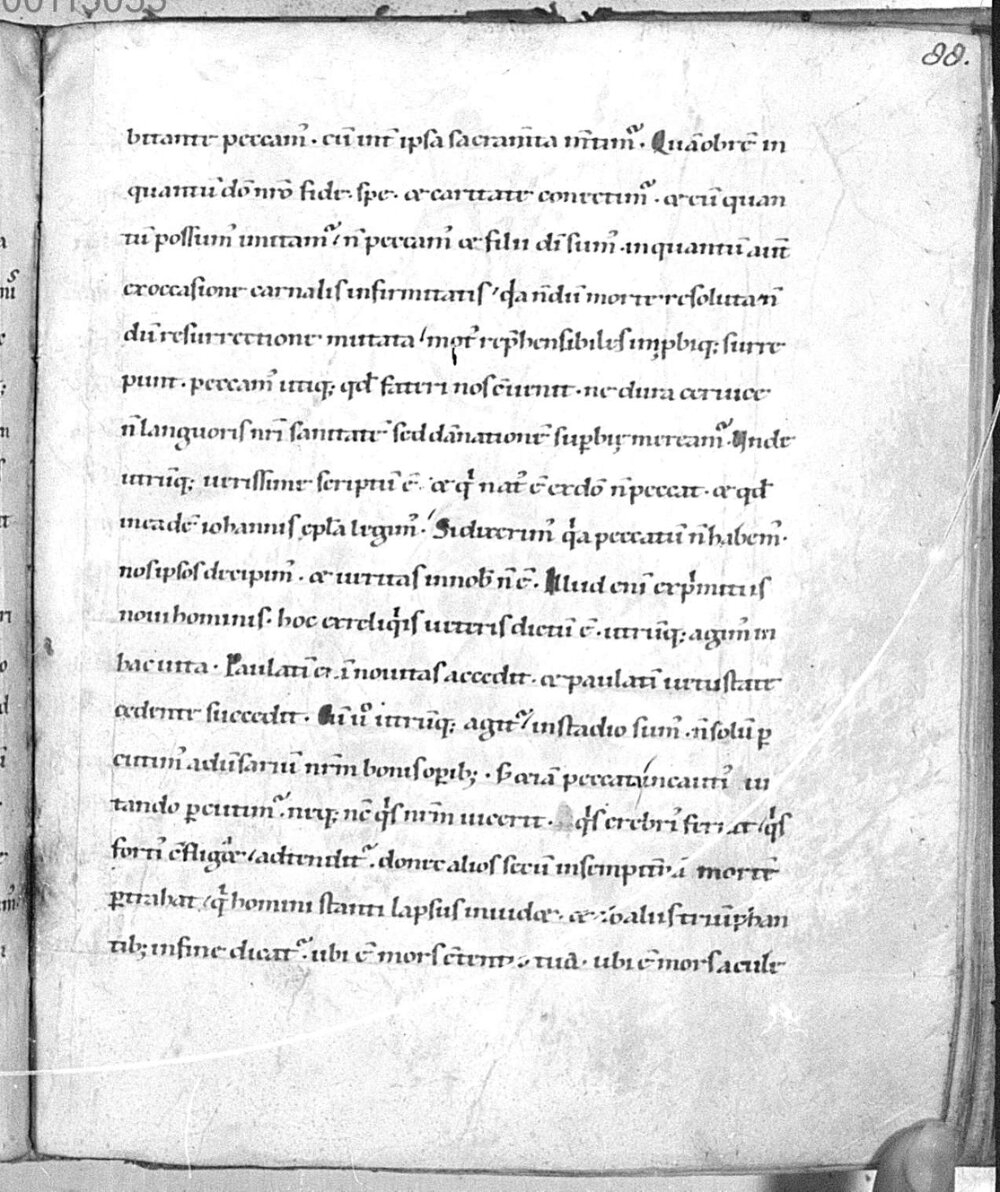 88.
bitante peccam᷒. cū int̄ ipsa sacram̄ta m̄tim᷒. Quāobrē in
quantū dō nr̄o fide. spe. & caritate conectim᷒. & eū quan
tū possum᷒ imitam᷒. n̄ peccam᷒ & filii dī sum᷒. inquantū aut̄
exoccasione carnalis infirmitatis. qa n̄dū morte resoluta n̄
dū resurrectione mutata. mot᷒ rep̄hensibiles imp̱biq; surre
punt. peccam᷒ utiq; qd̄ fateri nos c̄uenit. ne dura ceruice
n̄ languoris nr̄i sanitatē sed dānationē sup̱bię meream᷒. Unde
utrūq; uerissime scriptū ē. & qi nat᷒ ē ex dō n̄ peccat. & qd̄
in eadē iohannis ep̄la legim᷒. Si dixerim᷒ qa peccatū n̄ habem᷒.
nos ipsos decipim᷒. & ueritas in nob̄ n̄ ē. Illud enī ex p̄mitiis
noui hominis. hoc ex reliqis ueteris dictū ē. utrūq; agim᷒ in
hac uita. Paulatī novitas accedit. & paulatī uetustate
cedente succedit. Cū uo utrūq; agit᷒. in stadio sum᷒. n̄ solū p̱
cutim᷒ aduersariū nr̄m bonis op̱ib;. s; &iā peccata incauti᷒ ui
tando p̱cutim᷒. neq; nc̄ qs nr̄m uicerit. qs crebri᷒ qs
forti᷒ adtendit᷒. donec alios secū in sempit̄nā mortē
p̱trahat. qi homini stanti lapsus inuid&. & triūphan
tib; in fine dicat᷒. ubi ē mors tua. ubi ē mors acule